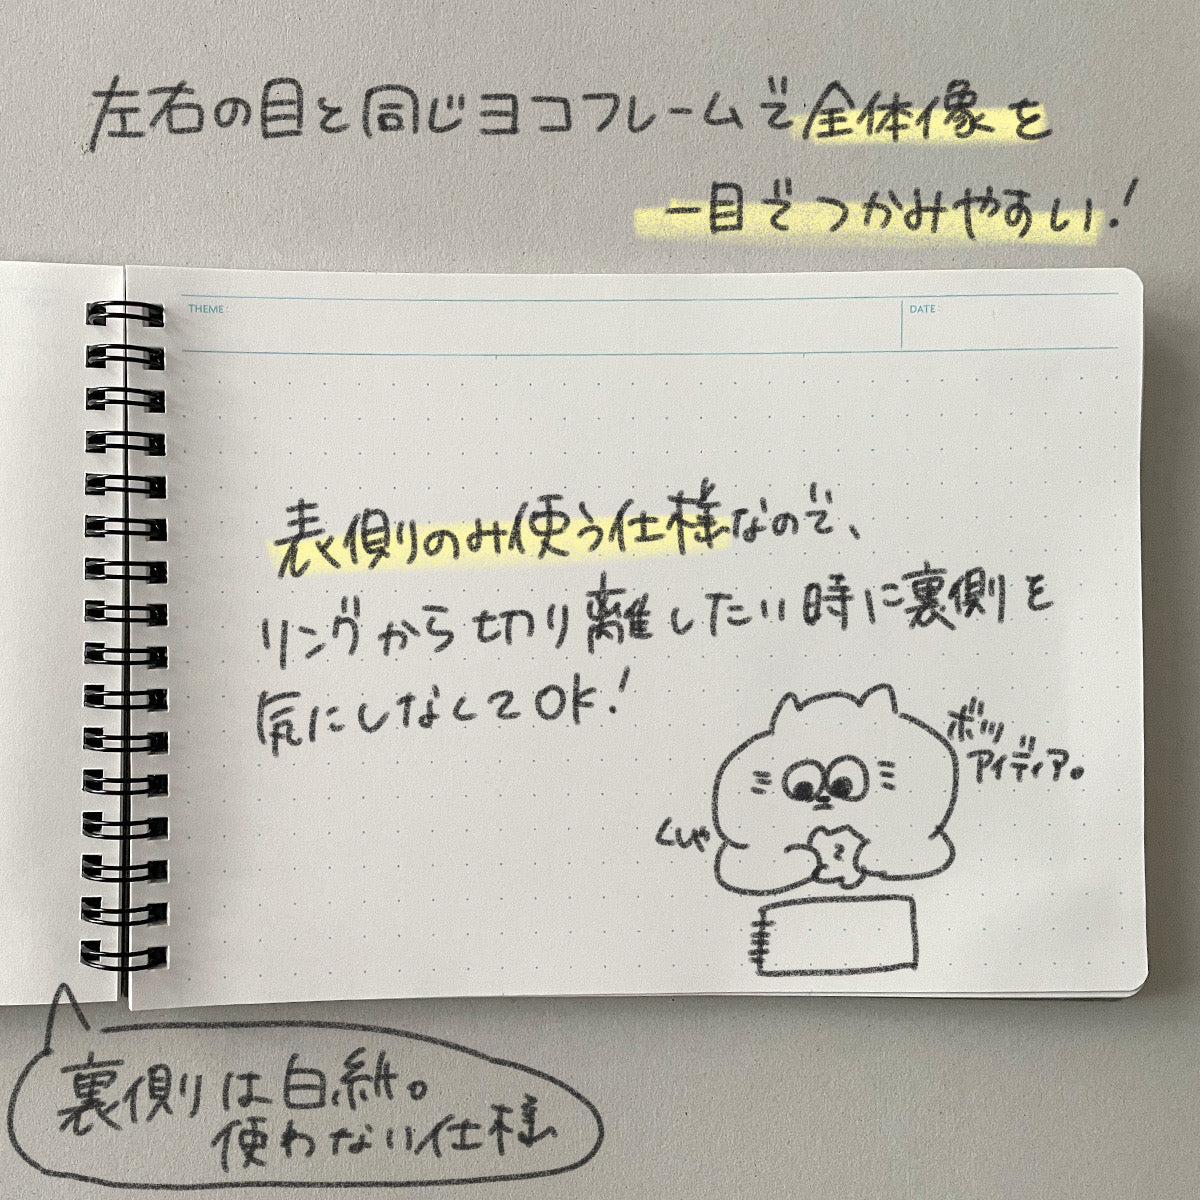 左右の目と同じヨコフレームで全体像を
一目でつかみやすい!
THEME:
DATE:
表側のみ使う仕様なので、
リングから切り離したい時に裏側を
気にしなくてOK!
ボツ
アイディア。
くしゃ
裏側は白紙。
使わない仕様